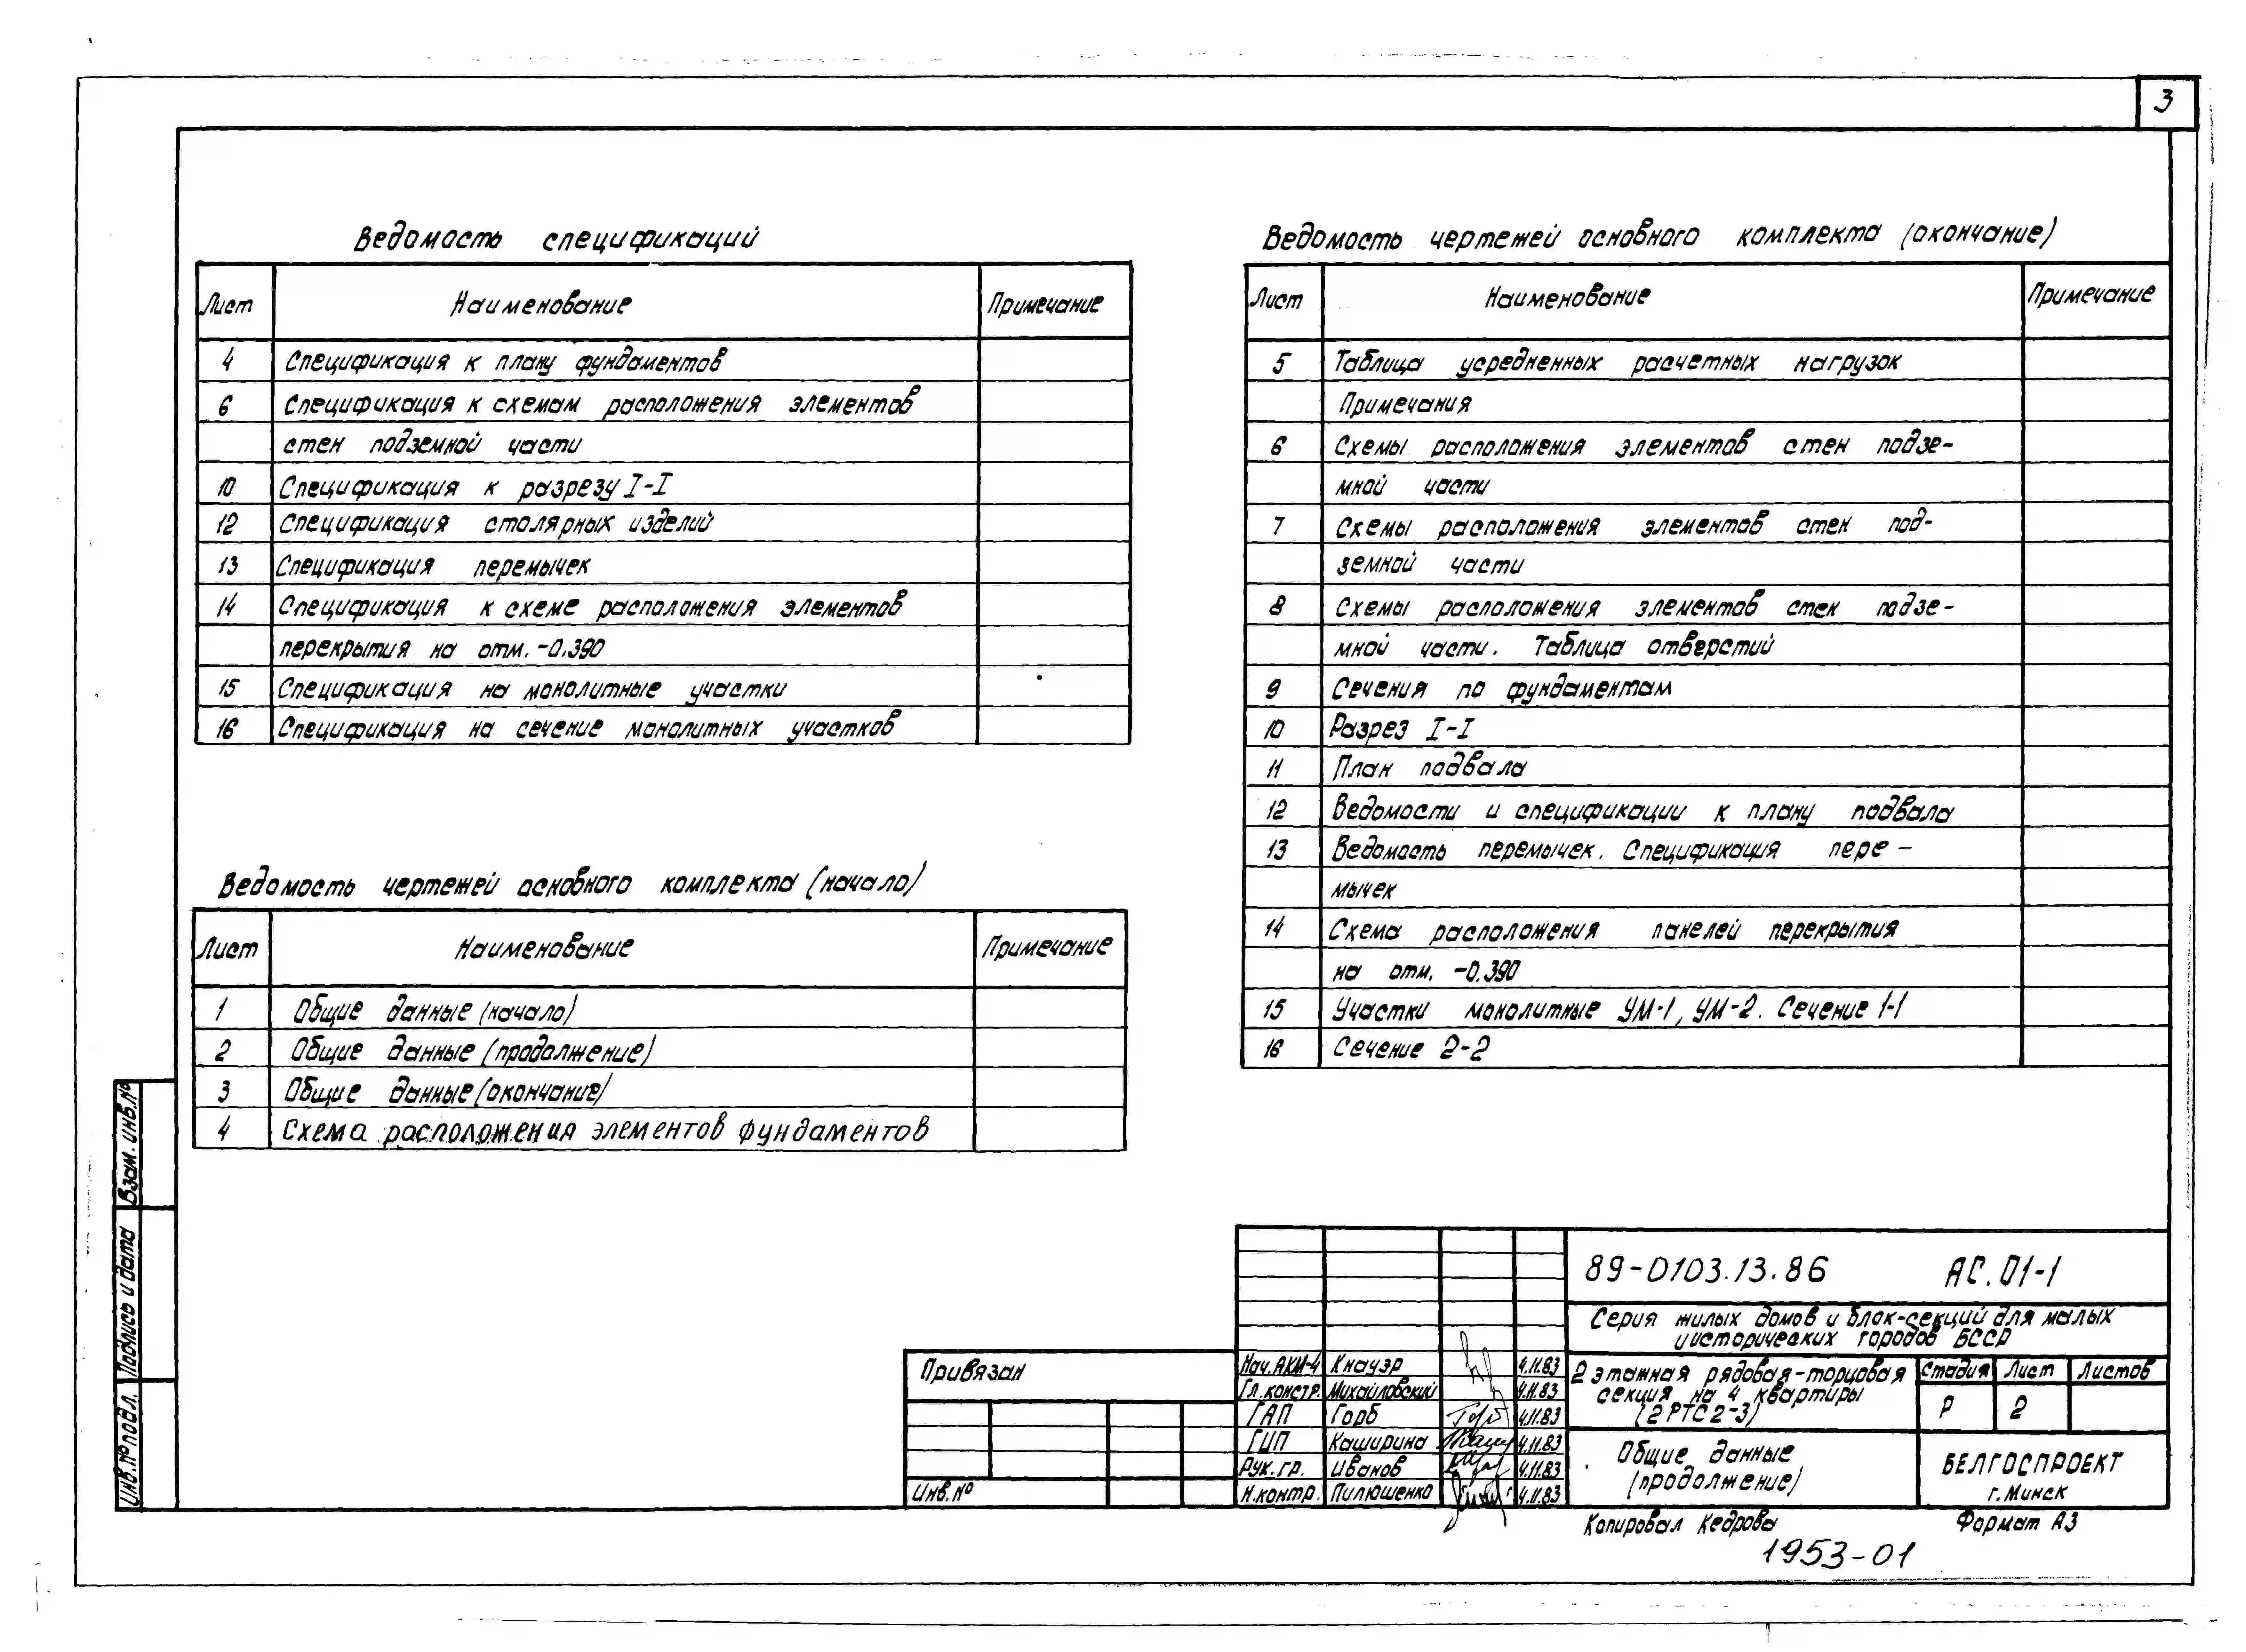 3
Ведомость спецификаций
Лист Наименование Примечание
4 Спецификация к плану фундаментов
6 Спецификация к схемам расположения элементов
стен подземной части
10 Спецификация к разрезу I-I
12 Спецификация столярных изделий
13 Спецификация перемычек
14 Спецификация к схеме расположения элементов
перекрытия на отм. -0.390
15 Спецификация на монолитные участки
16 Спецификация на сечение монолитных участков
Ведомость чертежей основного комплекта (начало)
Лист Наименование Примечание
1 Общие данные (начало)
2 Общие данные (продолжение)
3 Общие данные (окончание)
4 Схема расположения элементов фундаментов
Ведомость чертежей основного комплекта (окончание)
Лист Наименование Примечание
5 Таблица усредненных расчетных нагрузок
Примечания
6 Схемы расположения элементов стен подзе-
мной части
7 Схемы расположения элементов стен под-
земной части
8 Схемы расположения элементов стен подзе-
мной части. Таблица отверстий
9 Сечения по фундаментам
10 Разрез I-I
11 План подвала
12 Ведомости и спецификации к плану подвала
13 Ведомость перемычек. Спецификация пере-
мычек
14 Схема расположения панелей перекрытия
на отм. -0.390
15 Участки монолитные УМ-1, УМ-2. Сечение 1-1
16 Сечение 2-2
Взам. инв.№
Подпись и дата
Инв.№ подл.
Привязан
Инв.№
89-0103.13.86 АС.01-1
Серия жилых домов и блок-секций для малых
и исторических городов БССР
Нач.АКМ-4 Кнауэр 4.11.83
Гл.констр. Михайловский 4.11.83
ГАП Горб 4.11.83
ГИП Каширина 4.11.83
Рук.гр. Иванов 4.11.83
Н.контр. Пилюшенко 4.11.83
2 этажная рядовая-торцовая
секция на 4 квартиры
(2РТС2-3)
Стадия Лист Листов
Р 2
Общие данные
(продолжение)
БЕЛГОСПРОЕКТ
г. Минск
Копировал Кедрова Формат А3
1953-01